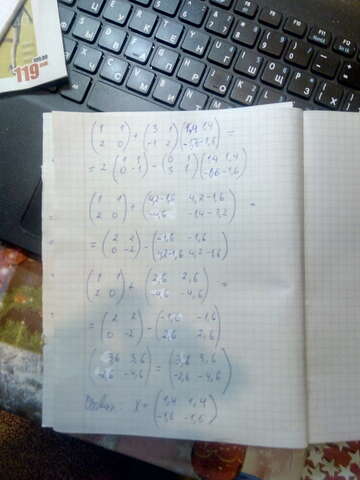 119
(1 1 2 0) + (3 1 -1 2)(1,4 1,4 -1,6 -1,6) =
= 2(1 1 0 -1) - (0 1 3 1)(1,4 1,4 -1,6 -1,6)
(1 1 2 0) + (4,2-1,6 4,2-1,6 -4,6 -1,4-3,2) =
= (2 2 0 -2) - (-1,6 -1,6 4,2-1,6 4,2-1,6)
(1 1 2 0) + (2,6 2,6 -4,6 -4,6) =
= (2 2 0 -2) - (-1,6 -1,6 2,6 2,6)
(3,6 3,6 -2,6 -4,6) = (3,6 3,6 -2,6 -4,6)
X = (1,4 1,4 -1,6 -1,6)